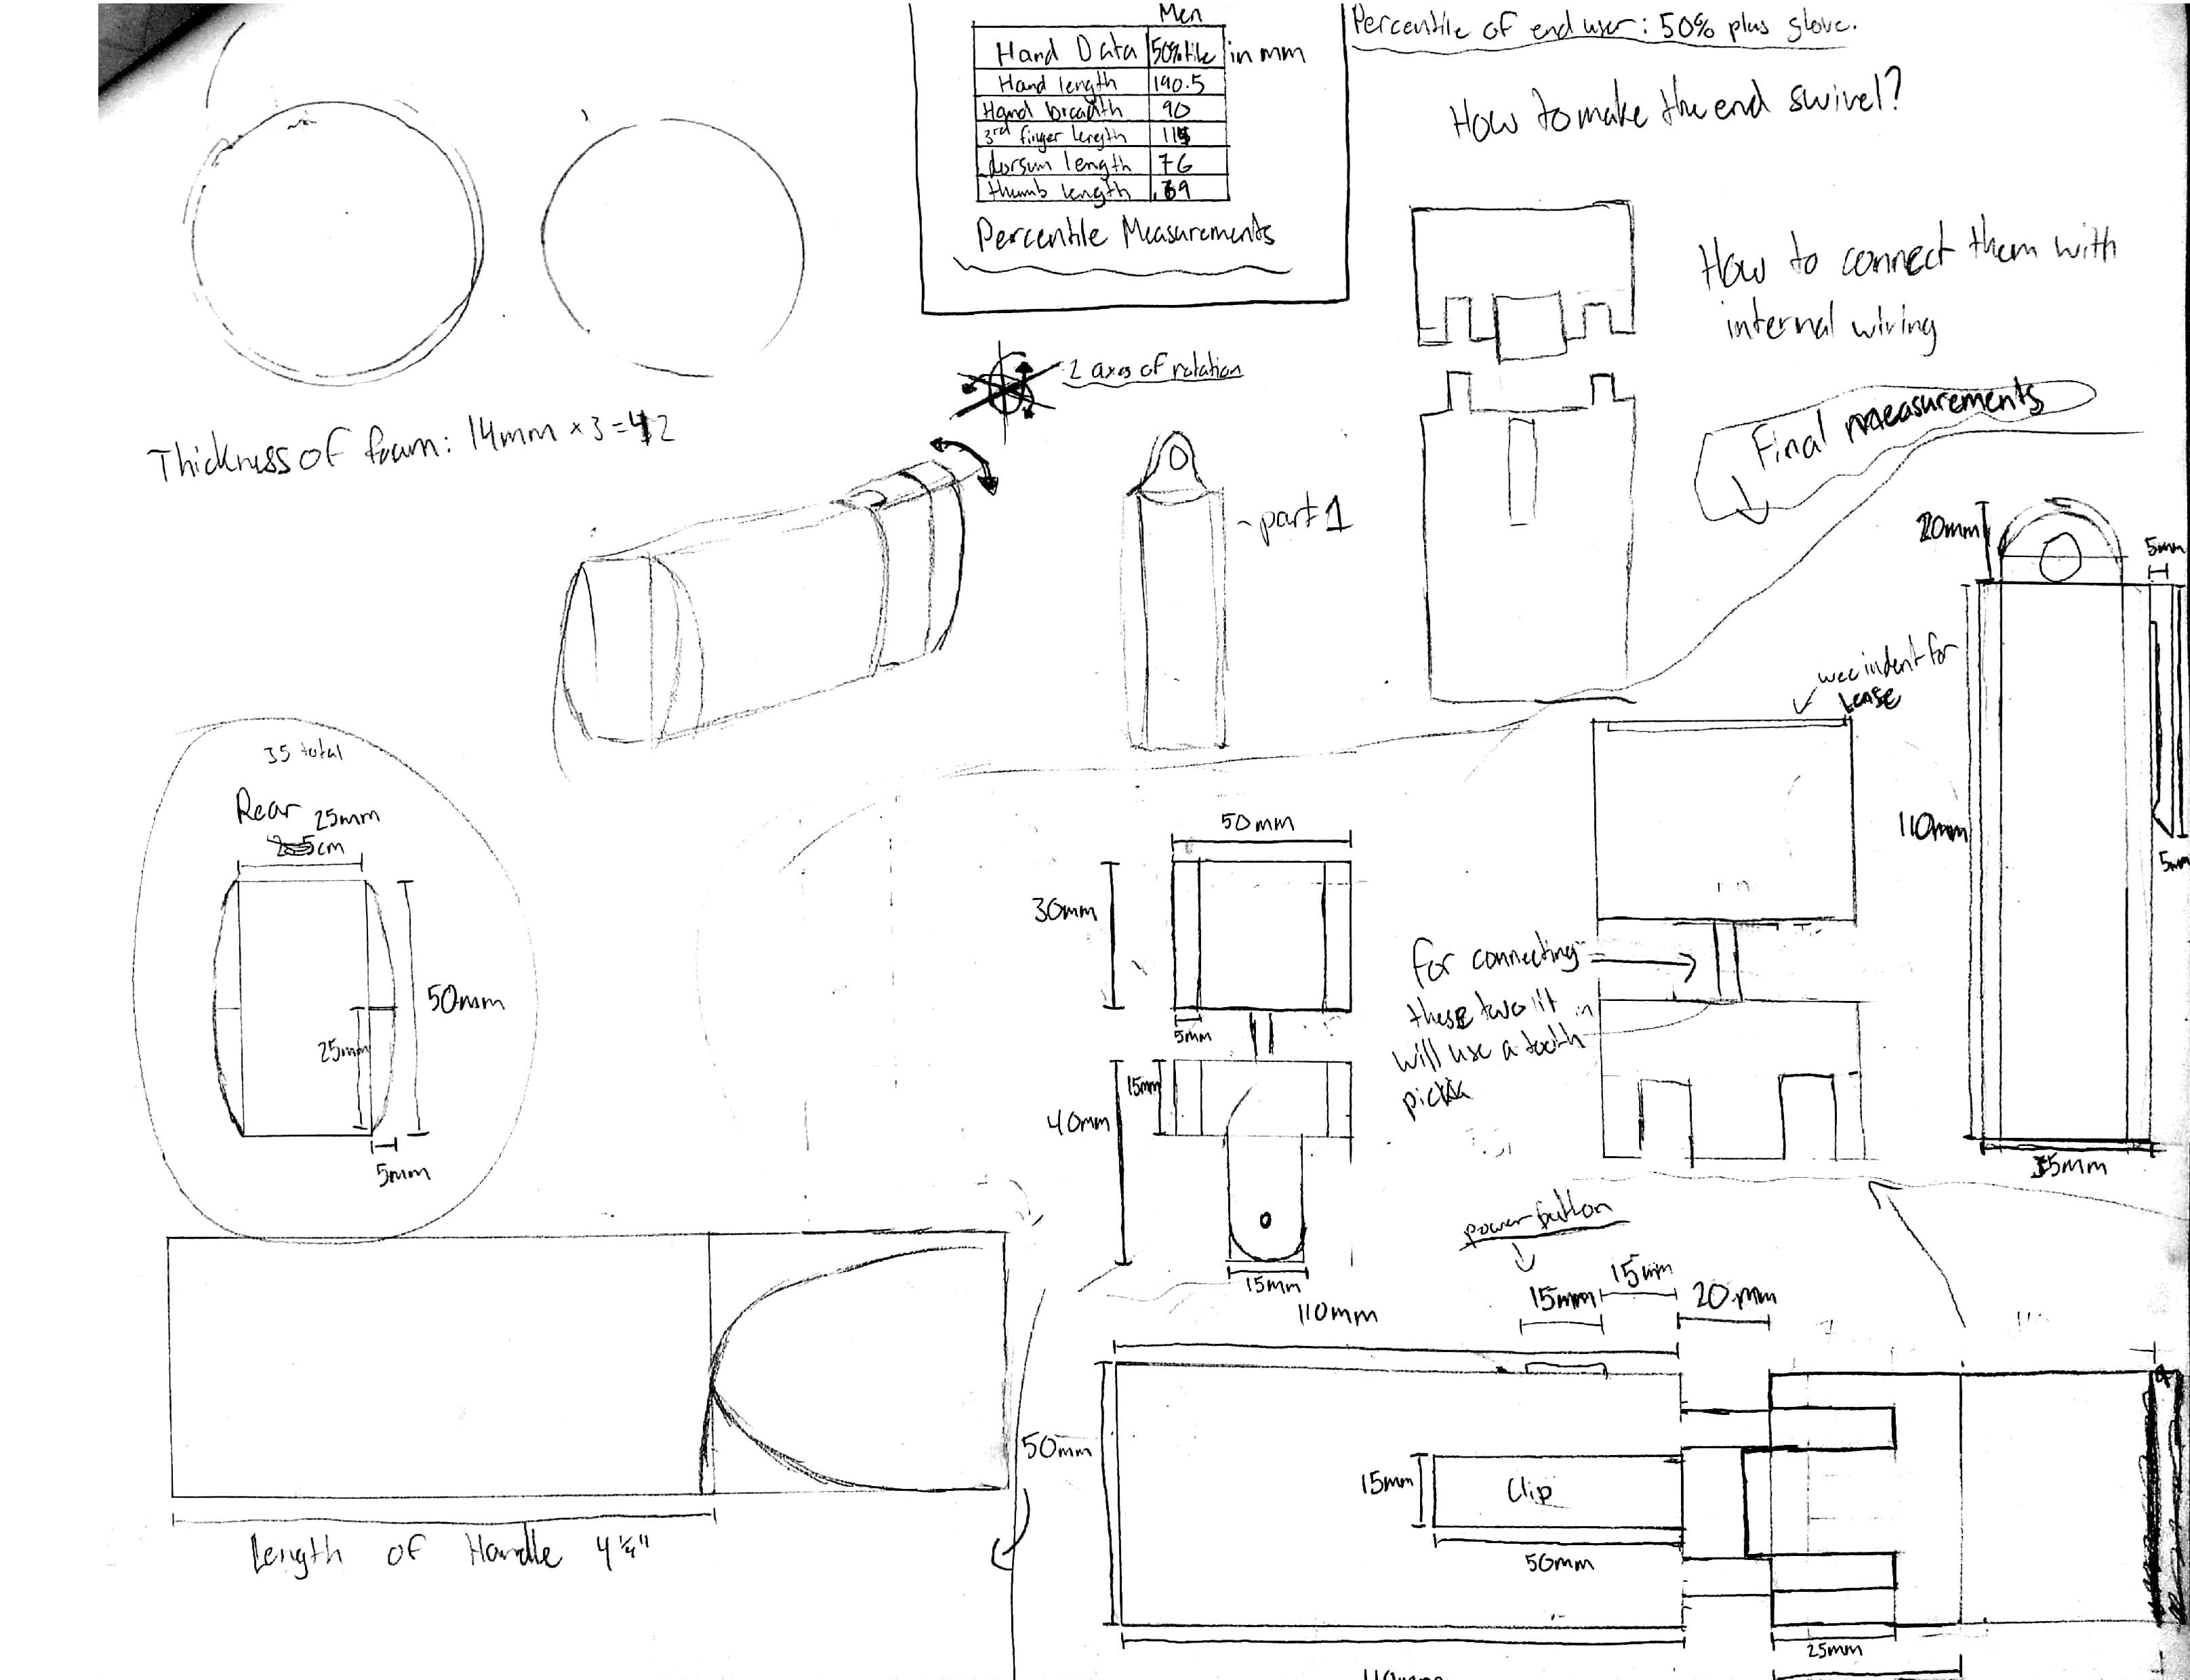 Men
Hand Data 50%tile in mm
Hand length 190.5
Hand breadth 90
3rd finger length
dorsum length 76
thumb length
Percentile Measurements
Percentile of end user: 50% plus glove.
How to make the end swivel?
How to connect them with
internal wiring
2 axes of rotation
Thickness of foam: 14mm × 3 = 42
part 1
Final measurements
20mm
5mm
110mm
5mm
35mm
wee indent for
lense
35 total
Rear
25mm
50mm
25mm
5mm
50mm
30mm
5mm
15mm
40mm
15mm
for connecting
these two
will use a tooth
pick
power button
15mm
15mm
20mm
110mm
50mm
15mm
Clip
50mm
25mm
110mm
Length of Handle 4 ¼"